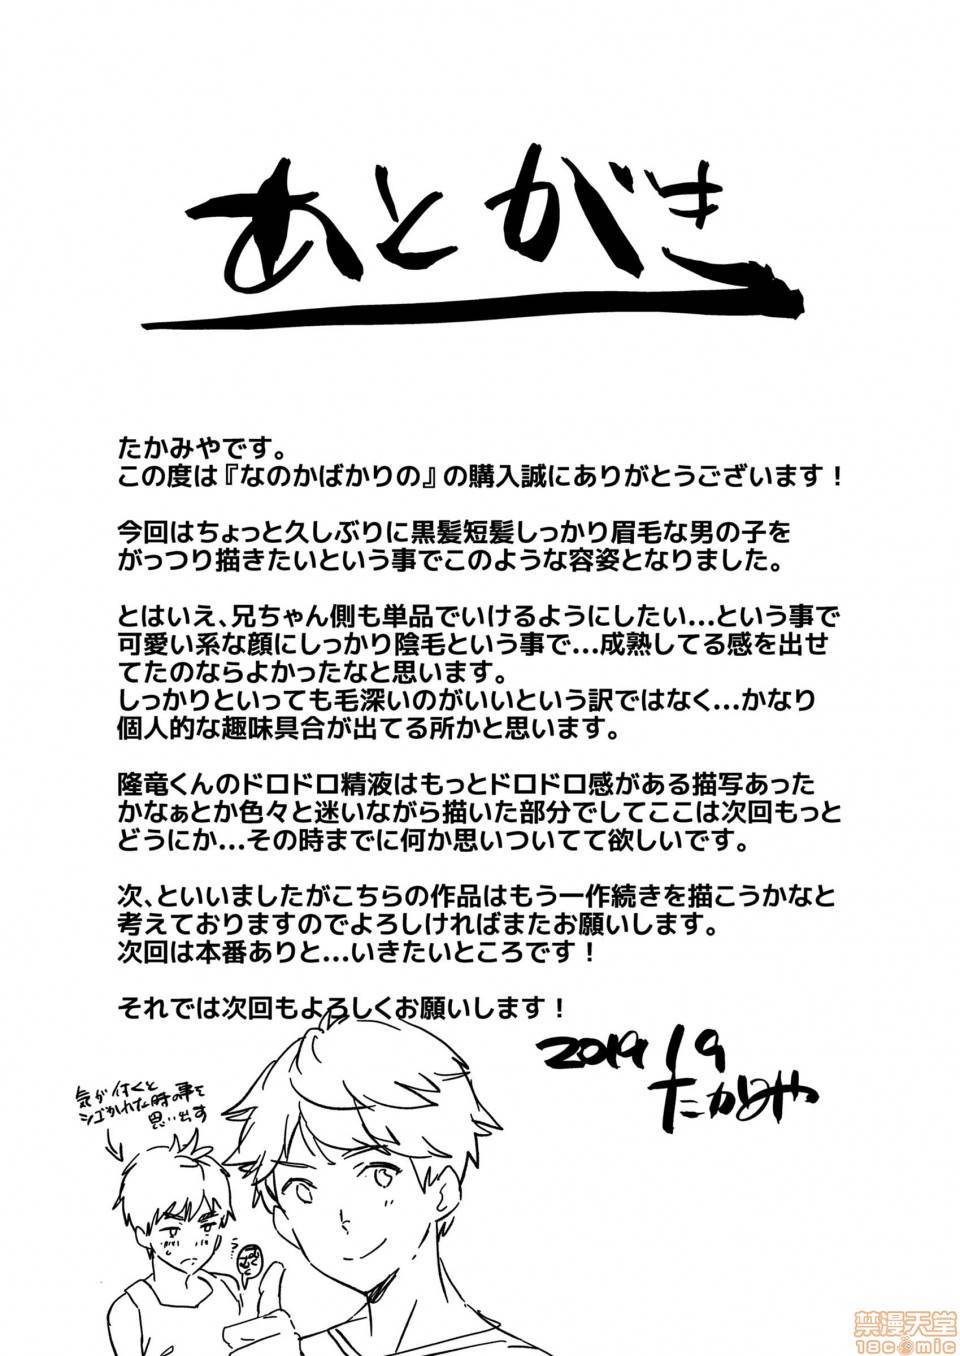 あとがき
たかみやです。
この度は『なのかばかりの』の購入誠にありがとうございます！
今回はちょっと久しぶりに黒髪短髪しっかり眉毛な男の子を
がっつり描きたいという事でこのような容姿となりました。
とはいえ、兄ちゃん側も単品でいけるようにしたい…という事で
可愛い系な顔にしっかり陰毛という事で…成熟してる感を出せ
てたのならよかったなと思います。
しっかりといっても毛深いのがいいという訳ではなく…かなり
個人的な趣味具合が出てる所かと思います。
隆竜くんのドロドロ精液はもっとドロドロ感がある描写あった
かなぁとか色々と迷いながら描いた部分でしてここは次回もっと
どうにか…その時までに何か思いついてて欲しいです。
次、といいましたがこちらの作品はもう一作続きを描こうかなと
考えておりますのでよろしければまたお願いします。
次回は本番ありと…いきたいところです！
それでは次回もよろしくお願いします！
2019 / 9
たかみや
気が付くと
シゴかれた時の事を
思い出す
禁漫天堂
18comic